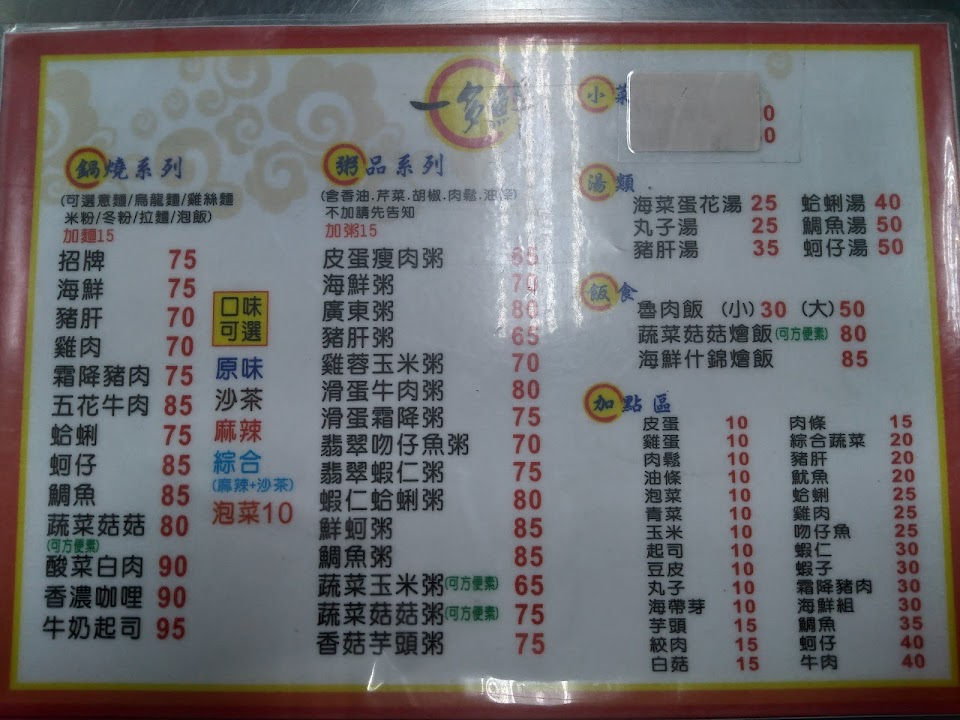 一多鮮
鍋燒系列
(可選意麵/烏龍麵/雞絲麵
米粉/冬粉/拉麵/泡飯)
加麵15
招牌 75
海鮮 75
豬肝 70
雞肉 70
霜降豬肉 75
五花牛肉 85
蛤蜊 75
蚵仔 85
鯛魚 85
蔬菜菇菇 80
(可方便素)
酸菜白肉 90
香濃咖哩 90
牛奶起司 95
口味
可選
原味
沙茶
麻辣
綜合
(麻辣+沙茶)
泡菜10
粥品系列
(含香油.芹菜.胡椒.肉鬆.油條)
不加請先告知
加粥15
皮蛋瘦肉粥 65
海鮮粥 70
廣東粥 80
豬肝粥 65
雞蓉玉米粥 70
滑蛋牛肉粥 80
滑蛋霜降粥 75
翡翠吻仔魚粥 70
翡翠蝦仁粥 75
蝦仁蛤蜊粥 80
鮮蚵粥 85
鯛魚粥 85
蔬菜玉米粥(可方便素) 65
蔬菜菇菇粥(可方便素) 75
香菇芋頭粥 75
小菜
0
0
湯類
海菜蛋花湯 25 蛤蜊湯 40
丸子湯 25 鯛魚湯 50
豬肝湯 35 蚵仔湯 50
飯食
魯肉飯 (小)30 (大)50
蔬菜菇菇燴飯(可方便素) 80
海鮮什錦燴飯 85
加點區
皮蛋 10 肉條 15
雞蛋 10 綜合蔬菜 20
肉鬆 10 豬肝 20
油條 10 魷魚 20
泡菜 10 蛤蜊 25
青菜 10 雞肉 25
玉米 10 吻仔魚 25
起司 10 蝦仁 30
豆皮 10 蝦子 30
丸子 10 霜降豬肉 30
海帶芽 10 海鮮組 30
芋頭 15 鯛魚 35
絞肉 15 蚵仔 40
白菇 15 牛肉 40